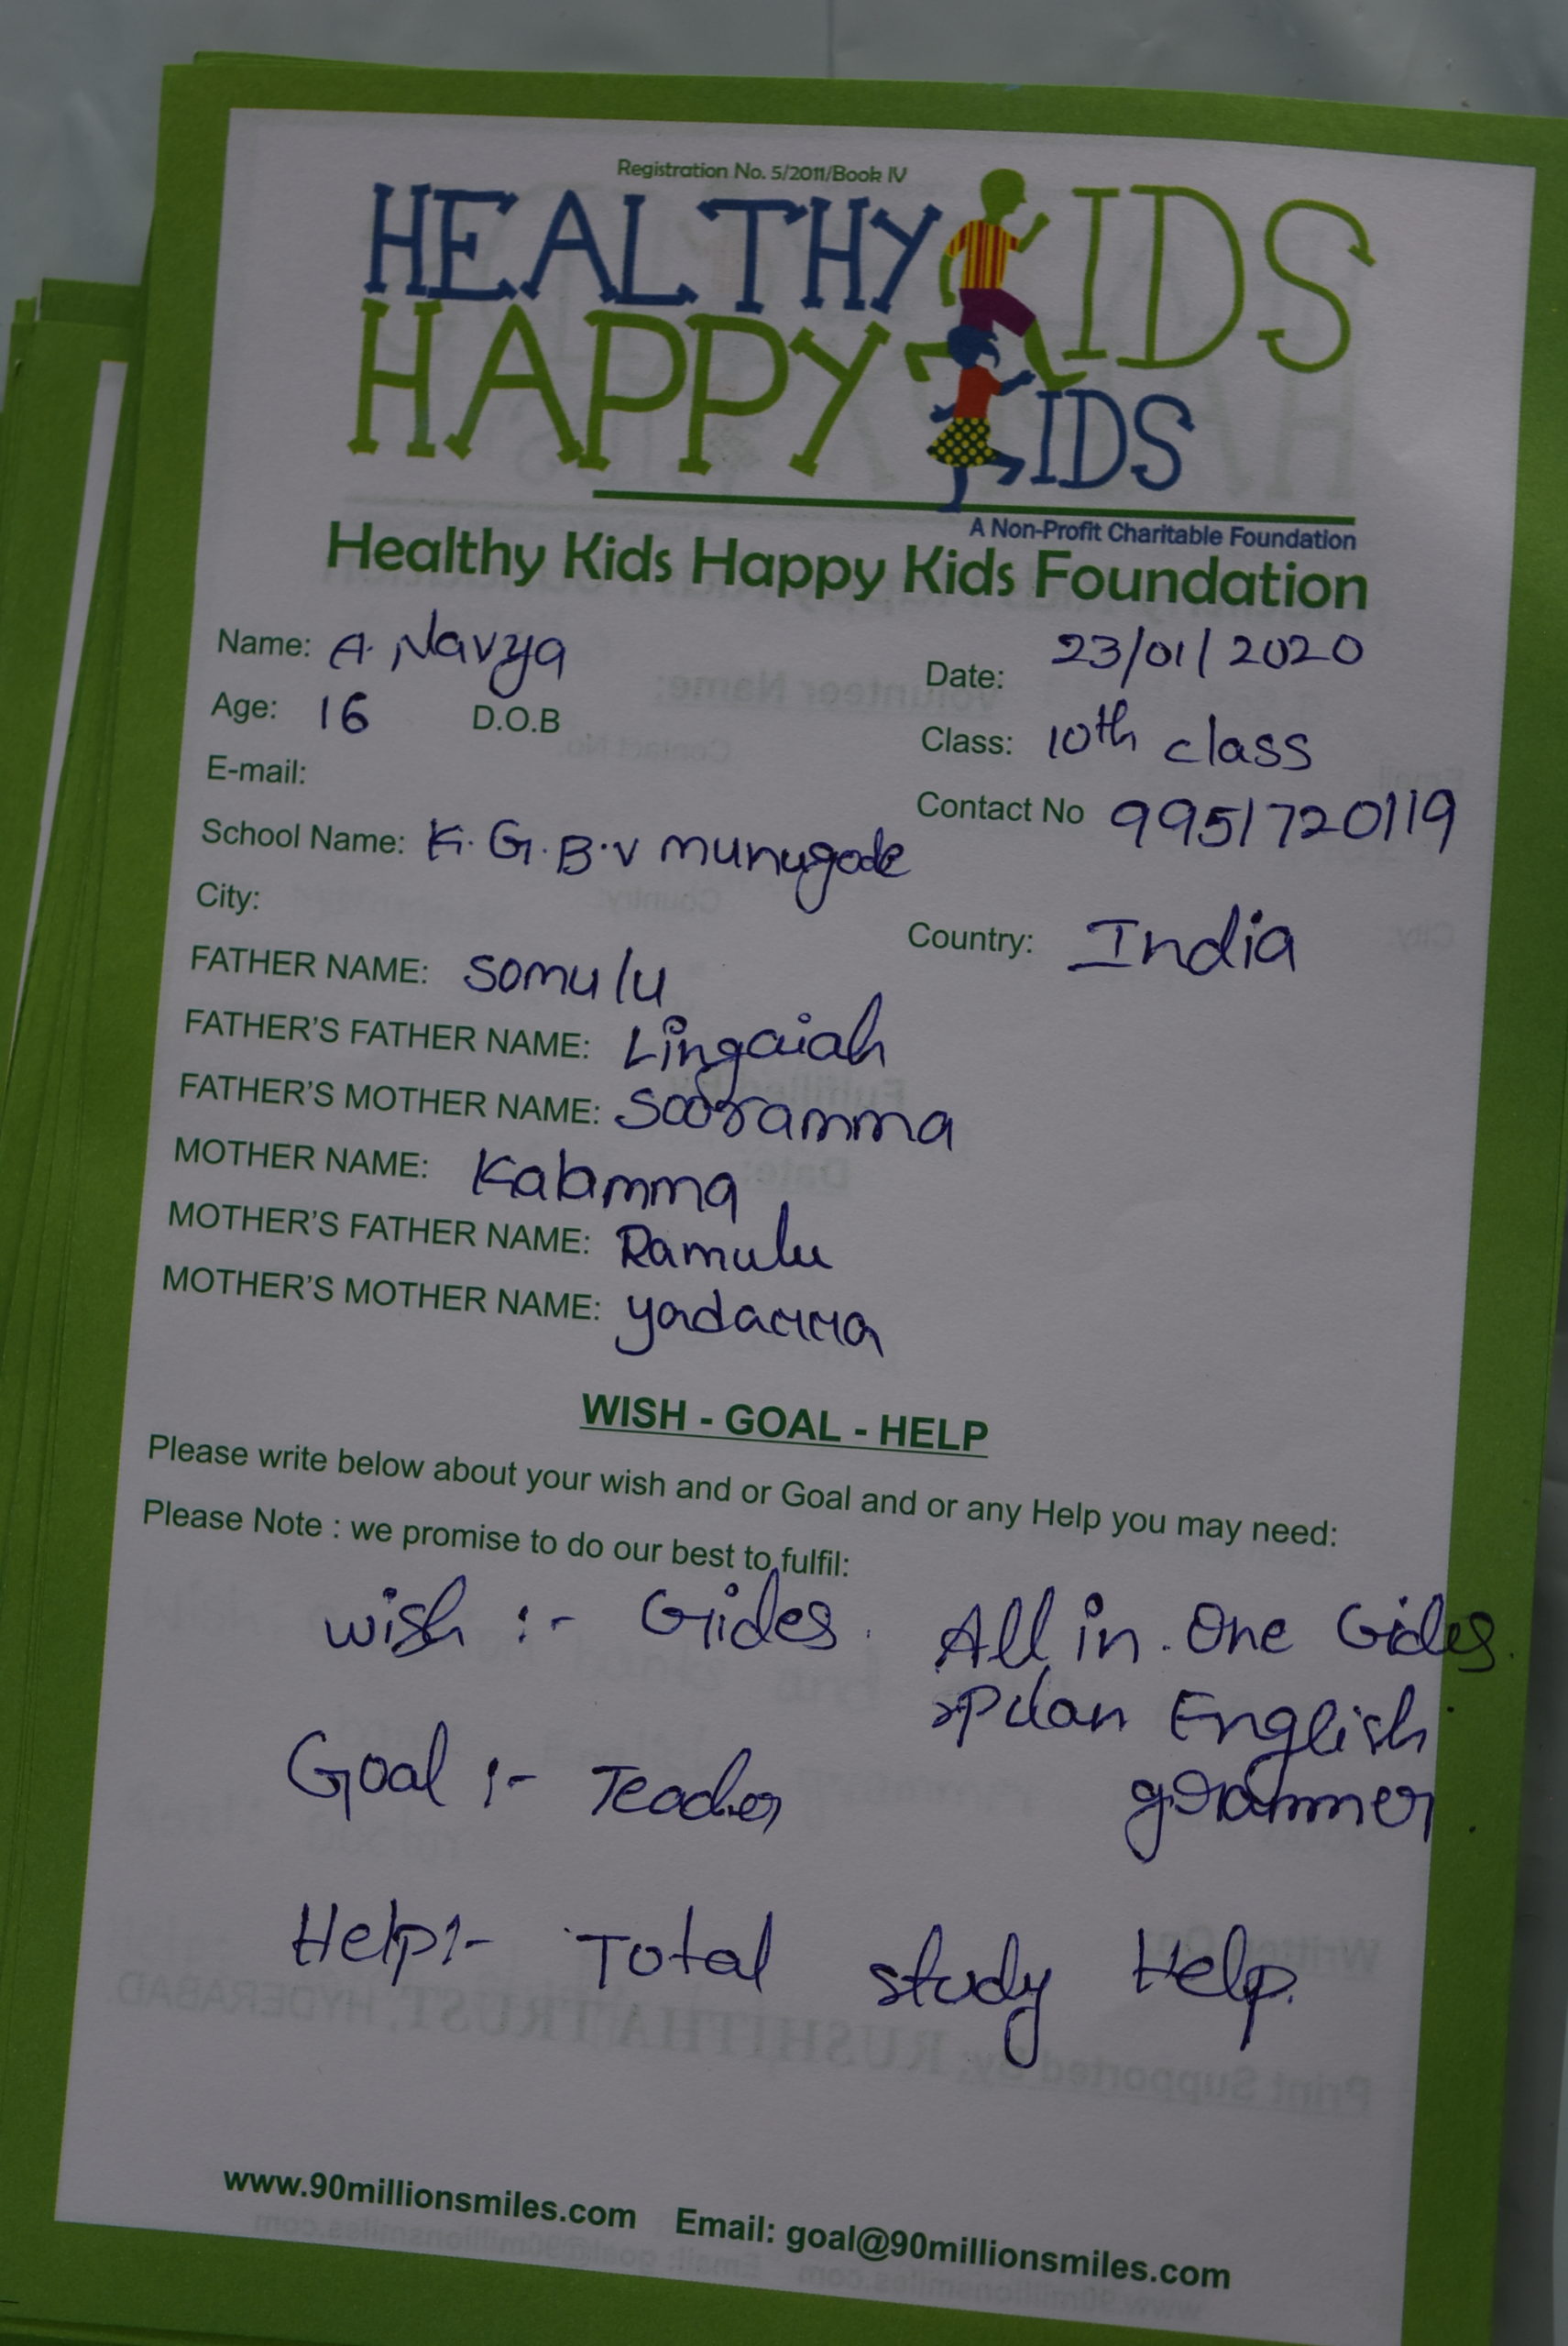 Registration No. 5/2011/Book IV
HEALTHY KIDS
HAPPY KIDS
A Non-Profit Charitable Foundation
Healthy Kids Happy Kids Foundation
Name: A. Navya Date: 23/01/2020
Age: 16 D.O.B Class: 10th class
E-mail: Contact No 9951720119
School Name: K.G.B.V munugode
City: Country: India
FATHER NAME: somulu
FATHER'S FATHER NAME: Lingaiah
FATHER'S MOTHER NAME: Sooramma
MOTHER NAME: Kalamma
MOTHER'S FATHER NAME: Ramulu
MOTHER'S MOTHER NAME: yadamma
WISH - GOAL - HELP
Please write below about your wish and or Goal and or any Help you may need:
Please Note : we promise to do our best to fulfil:
wish :- Gides. All in. One Gides.
English
Goal :- Teacher grammer.
Help:- Total study Help.
Print Supported By: RUSHITHA TRUST, HYDERABAD
www.90millionsmiles.com Email: goal@90millionsmiles.com